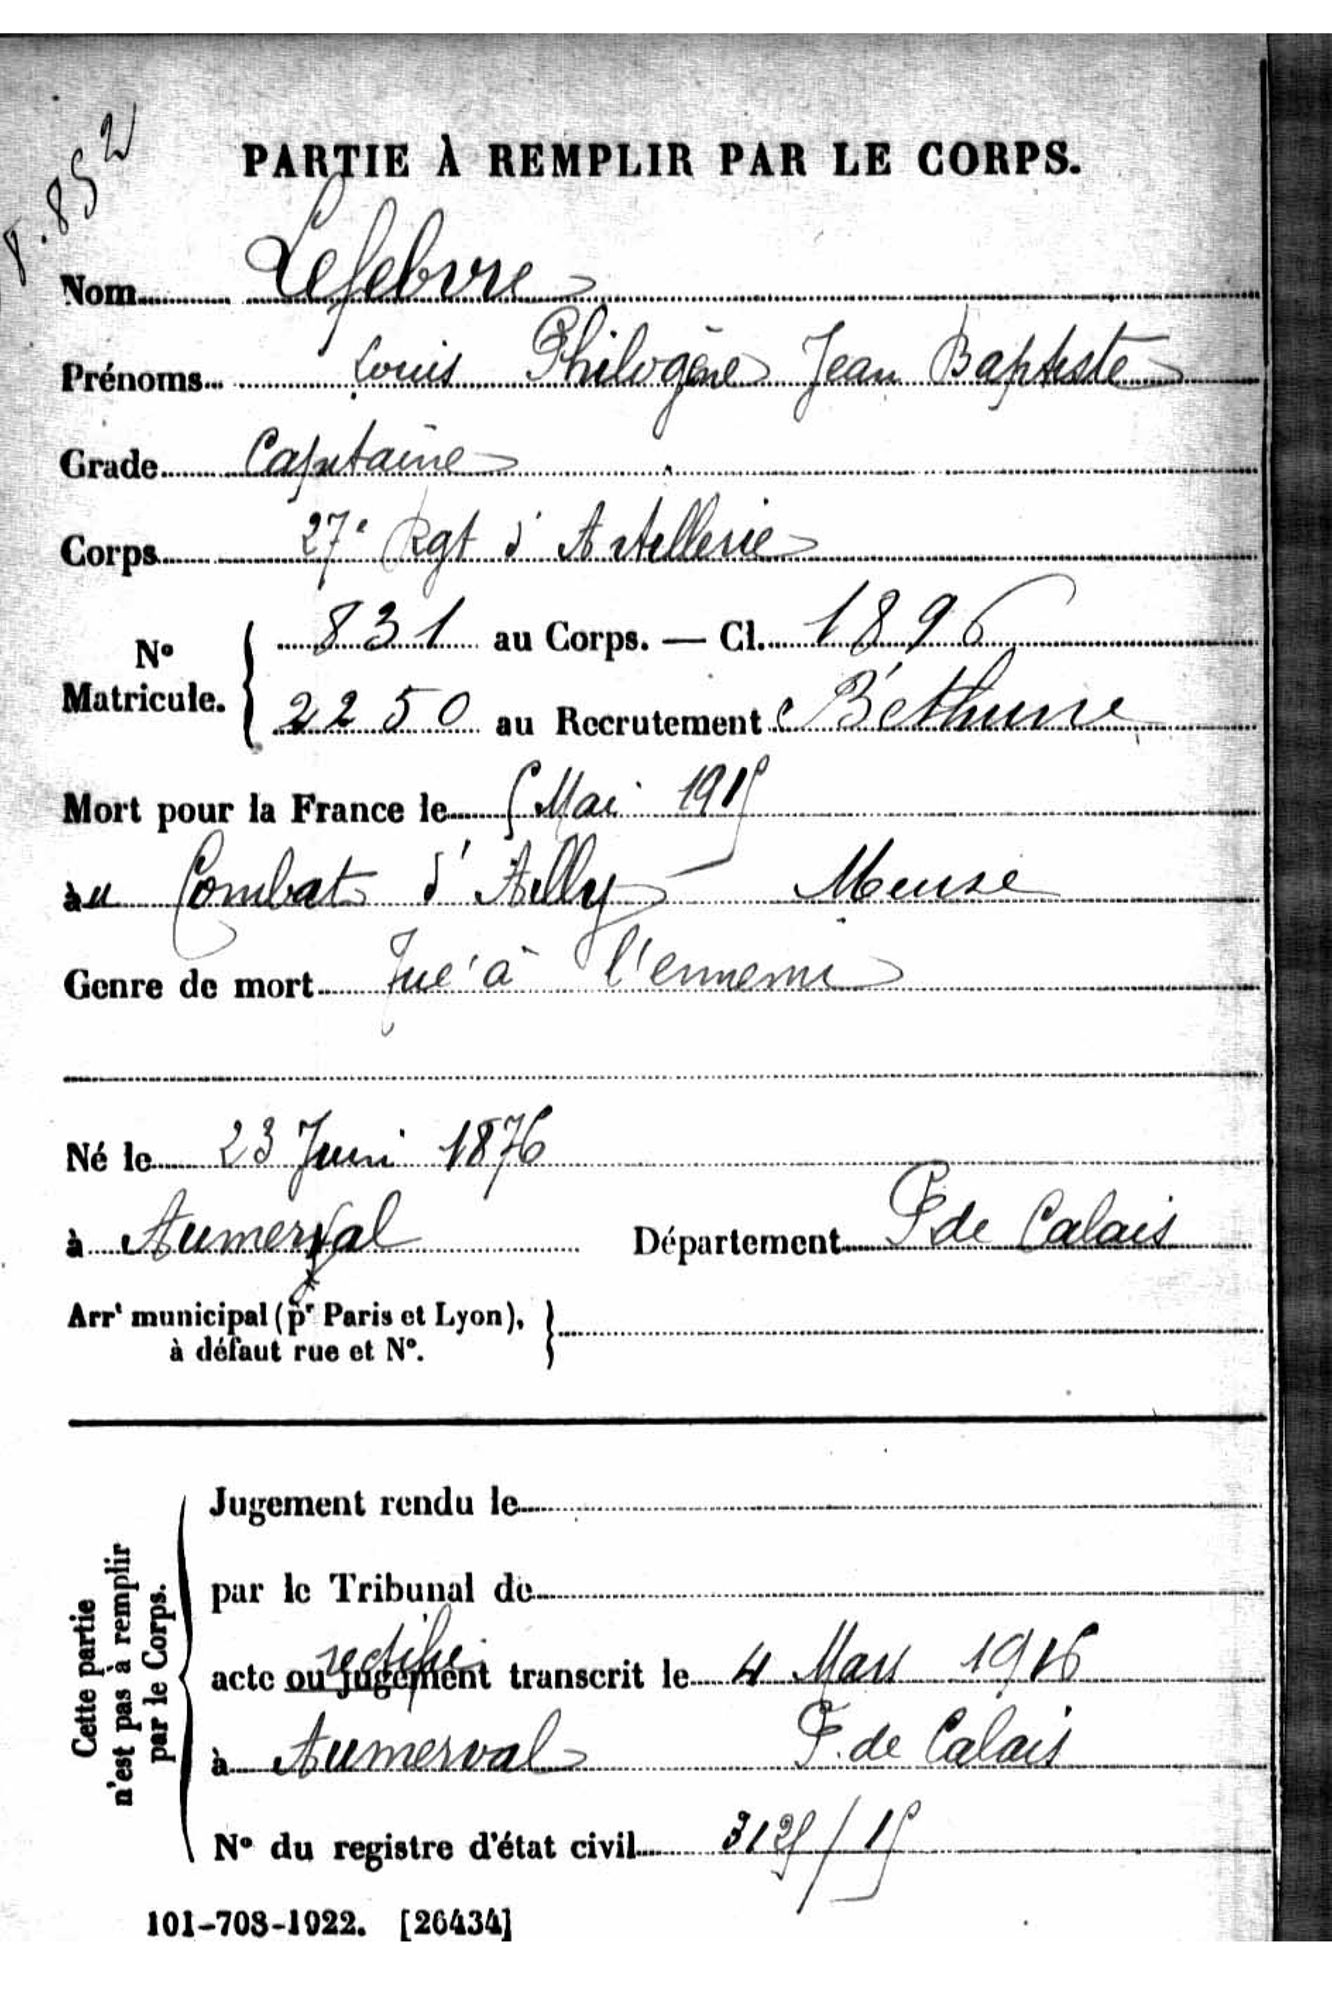 P.852
PARTIE À REMPLIR PAR LE CORPS.
Nom Lefebvre
Prénoms Louis Philogène Jean Baptiste
Grade Capitaine
Corps 27e Rgt d'Artillerie
No Matricule. { 831 au Corps. — Cl. 1896
2250 au Recrutement Béthune
Mort pour la France le 5 Mai 1915
au Combat d'Ailly Meuse
Genre de mort Tué à l'ennemi
Né le 23 Juin 1876
à Aumerval Département P. de Calais
Arrt municipal (pr Paris et Lyon), }
à défaut rue et No.
Cette partie
n'est pas à remplir
par le Corps.
Jugement rendu le
par le Tribunal de
rectifié
acte ou jugement transcrit le 4 Mars 1916
à Aumerval P. de Calais
No du registre d'état civil 3125/15
101-708-1922. [26434]